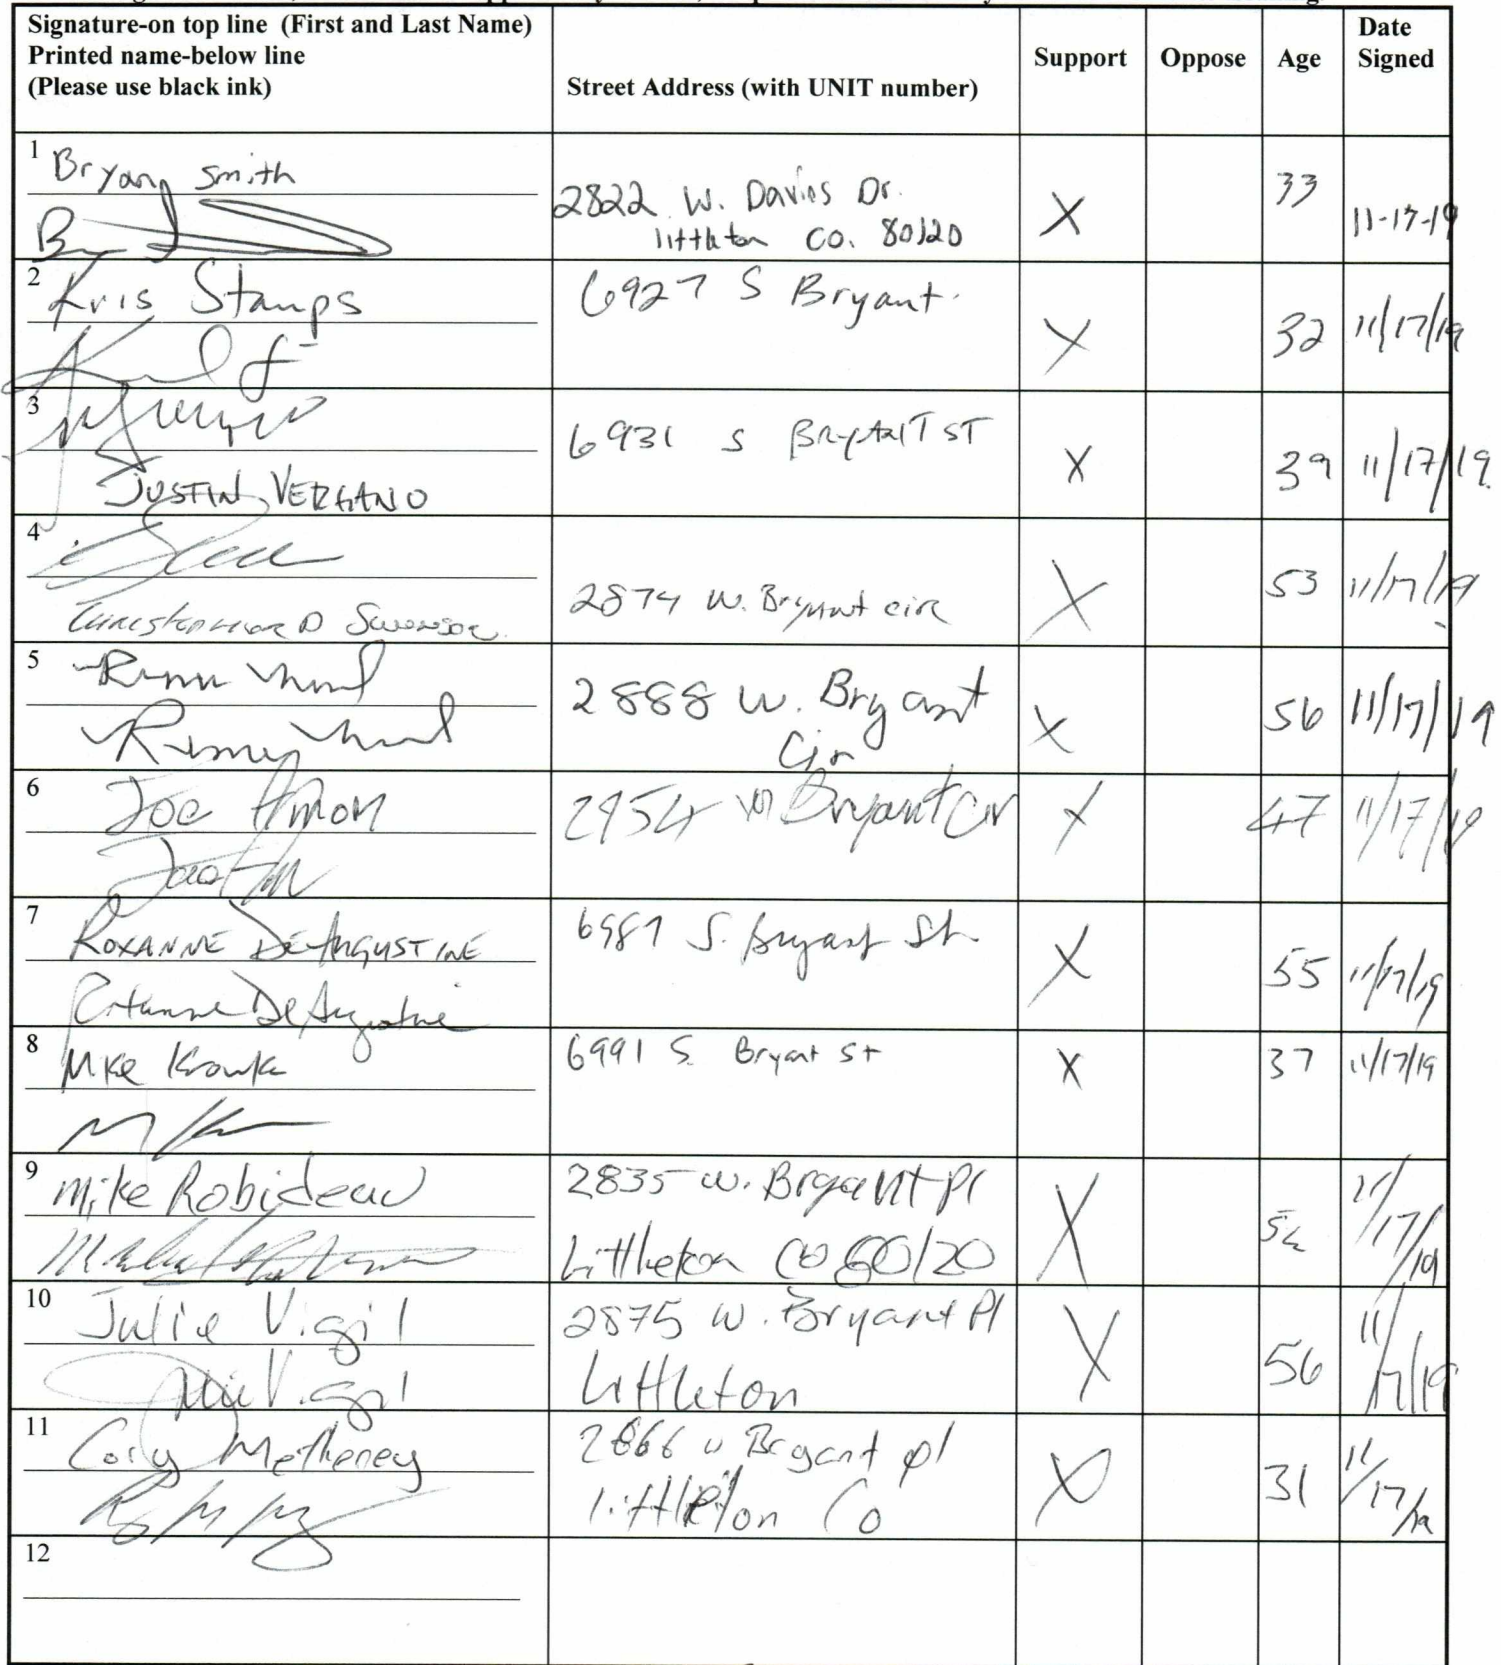 Signature-on top line (First and Last Name)
Printed name-below line
(Please use black ink)
Street Address (with UNIT number)
Support
Oppose
Age
Date
Signed
1
Bryan Smith
2822 W. Davies Dr.
littleton CO. 80120
X
33
11-17-19
2
Kris Stamps
6927 S Bryant.
X
32
11/17/19
3
JUSTIN VERGANO
6931 S BRYANT ST
X
39
11/17/19
4
Christopher D Swenson
2874 W. Bryant cir
X
53
11/17/19
5
2888 W. Bryant
Cir
X
56
11/17/19
6
Joe Amon
2954 W Bryant Cir
X
47
11/17/19
7
ROXANNE DEAUGUSTINE
Roxanne DeAugustine
6981 S. Bryant St.
X
55
11/17/19
8
Mike Krowka
6991 S. Bryant St
X
37
11/17/19
9
Mike Robideau
2835 W. Bryant Pl
Littleton CO 80120
X
52
11/17/19
10
Julie Vigil
Julie Vigil
2875 W. Bryant Pl
Littleton
X
56
11/17/19
11
Cory Metheney
2866 W Bryant pl
littleton Co
X
31
11/17/19
12